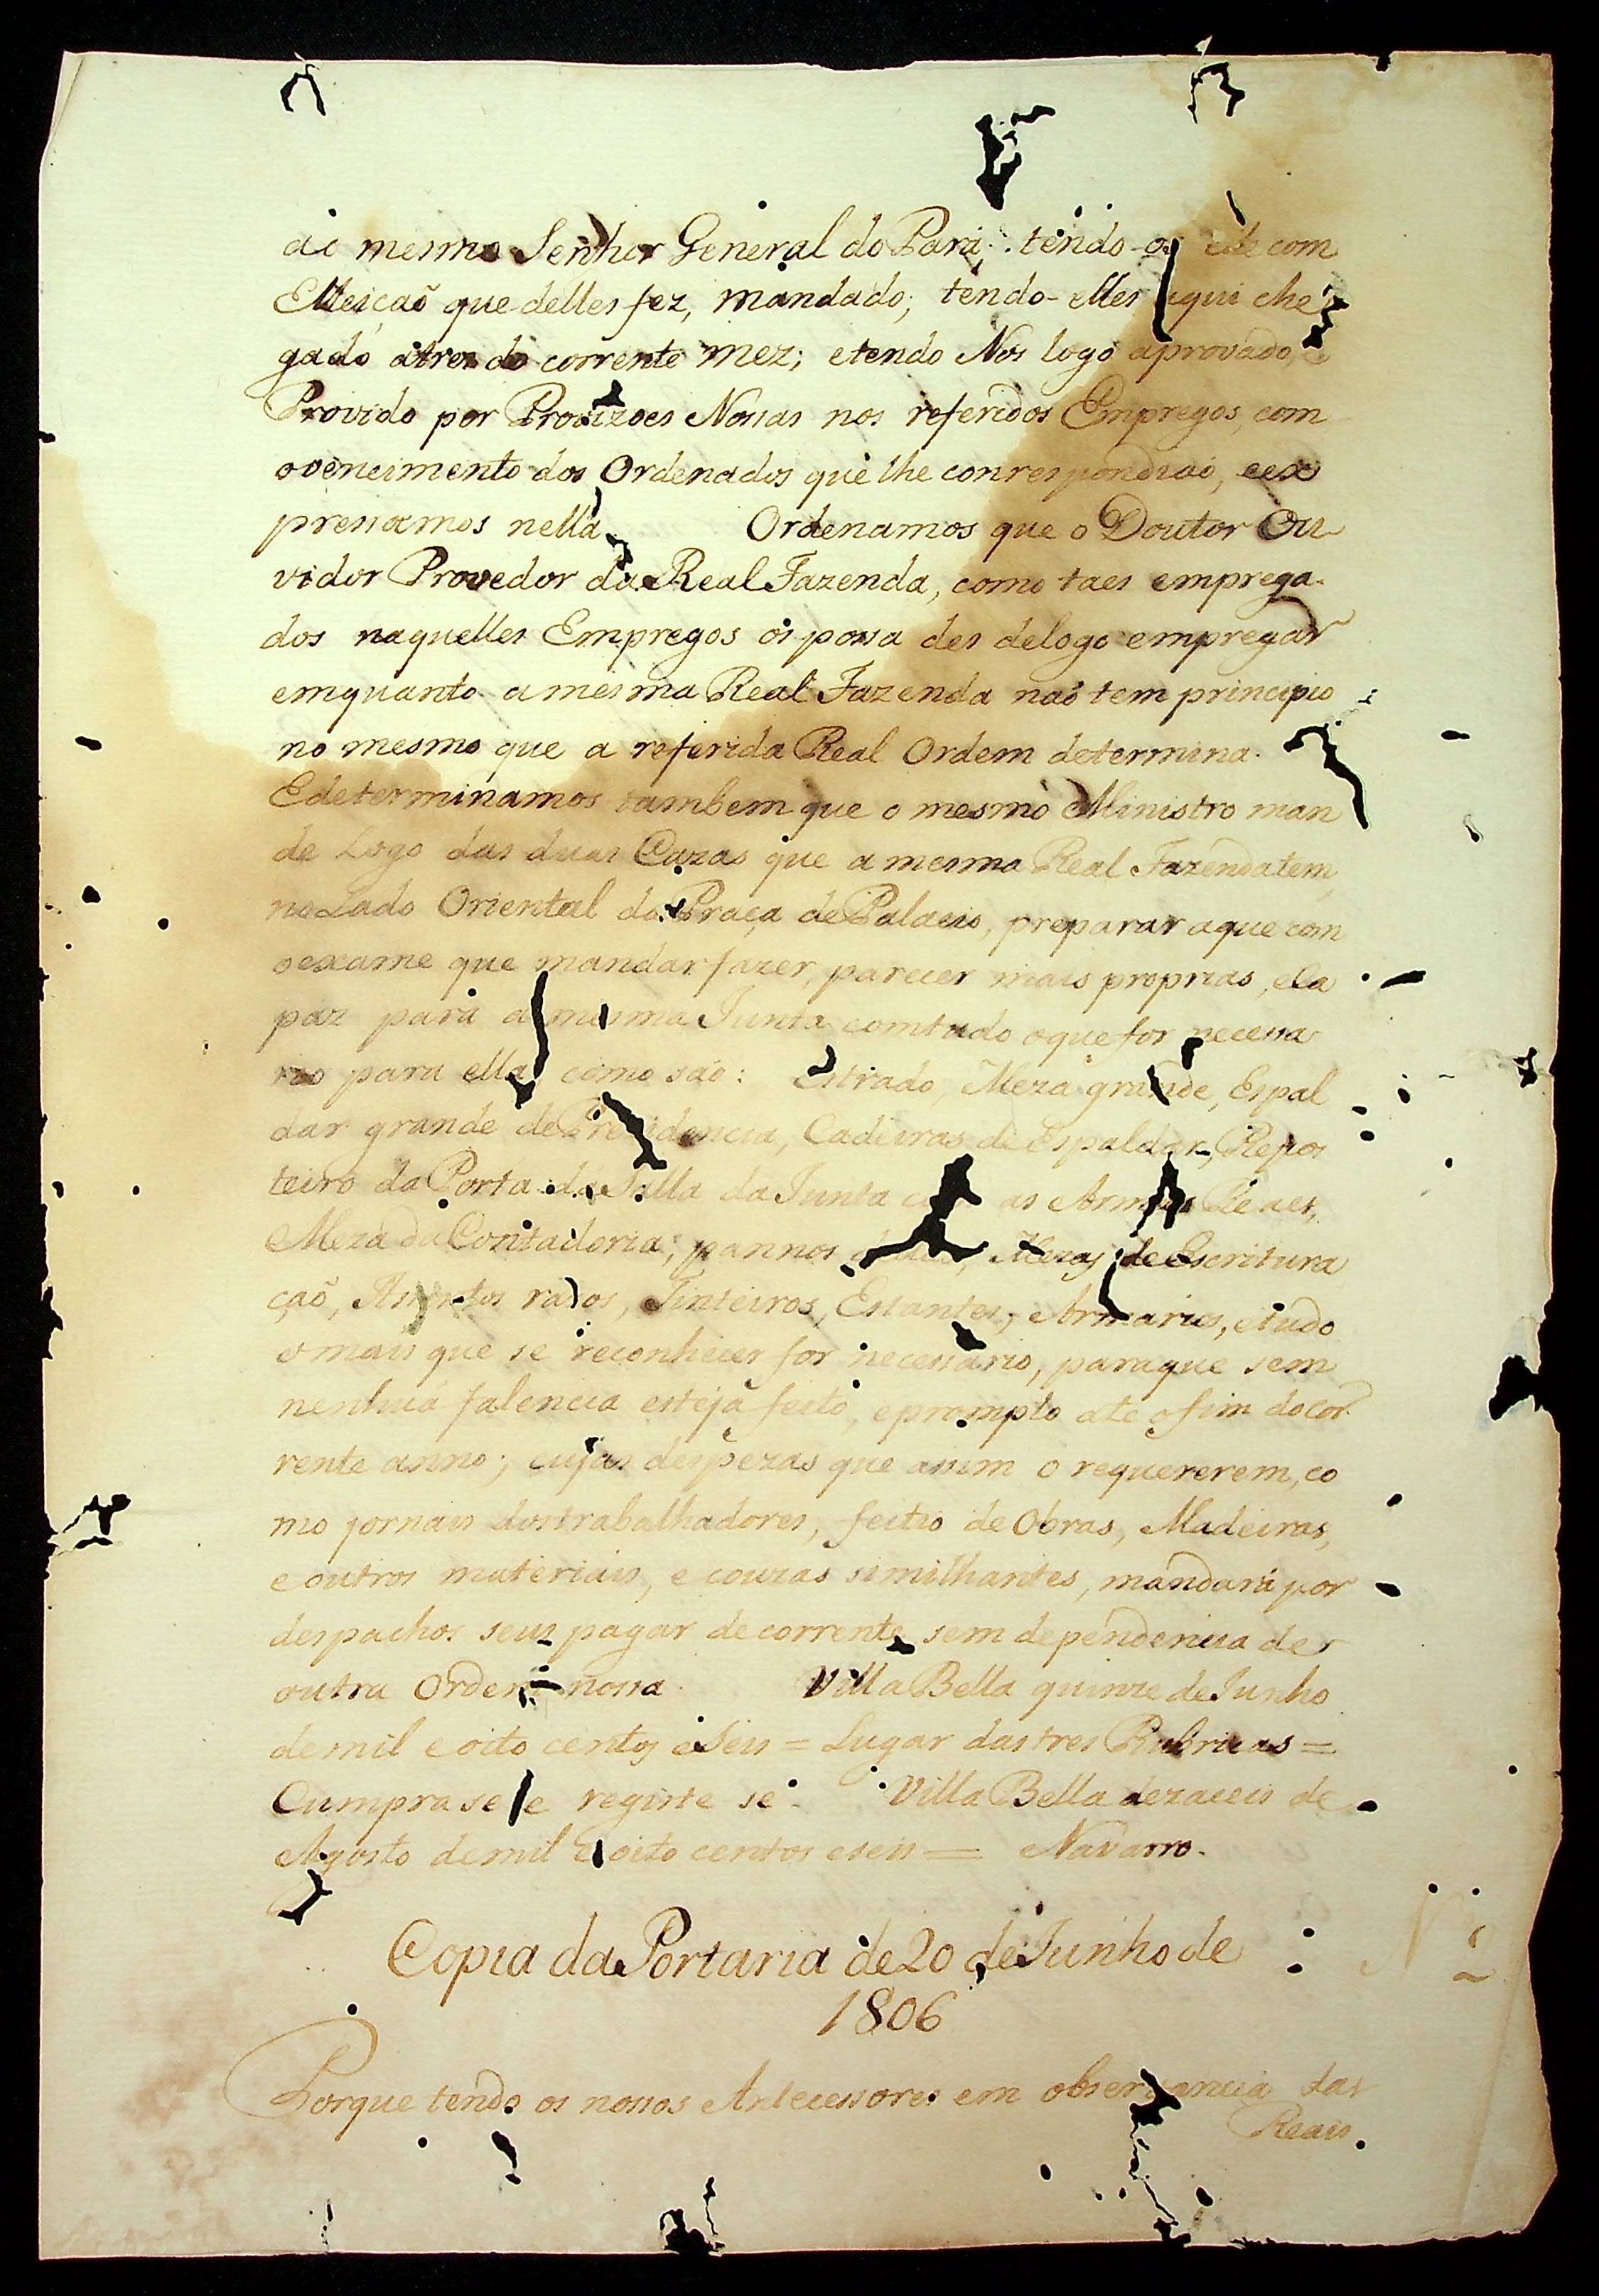 ao mesmo Senhor General do Pará: tendo-os este com
Elleiçaõ que delles fez, mandado; tendo-elles aqui che
gado átres do corrente mez; etendo Nós logo aprovado, e
Provido por Provizoes Nossas nos referidos Empregos, com
ovencimento dos Ordenados que lhe conrespondiaõ, eex
pressamos nella. Ordenamos que o Doutor Ou
vidor Provedor da Real Fazenda, como taes emprega-
dos naquelles Empregos os possa des delogo empregar
emquanto a mesma Real Fazenda naõ tem principio
no mesmo que a referida Real Ordem determina.
Edeterminamos tambem que o mesmo Ministro man
de Logo das duas Cazas que a mesma Real Fazenda tem
no Lado Oriental da Praça de Palacio, preparar aque com
oexame que mandar fazer, parecer mais proprias, eca
paz para a mesma Junta comtudo oque for necessa
rio para ella, como saõ: Estrado, Meza grande, Espal
dar grande de Prezidencia, Cadeiras de Espaldar, Repos
teiro da Porta da Salla da Junta as Armas Reaes,
Meza da Contadoria, pannos Mezas de Escritura
çaõ, Tinteiros, Estantes, Armarios, etudo
omais que se reconhecer for necessario, paraque sem
nenhuá falencia esteja feito, eprompto ate ofim docor-
rente anno; cujas despezas que assim o requererem, co
mo jornais dostrabalhadores, feitio de Obras, Madeiras,
e outros materiais, e couzas similhantes, mandará por
despachos seus pagar decorrente, sem dependencia de
outra Ordem nossa. Villa Bella quinze de Junho
demil eoito centos eSeis = Lugar das tres Rubricas =
Cumprase, e registe se. Villa Bella dezaceis de
Agosto demil eoito centos eseis = Navarro.
Copia da Portaria de 20 de Junho de
1806
Porque tendo os nossos Antecessores em observancia das
Reais